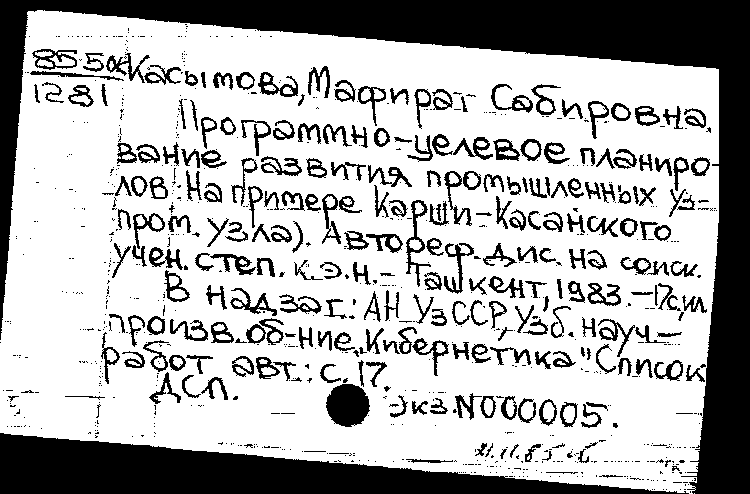 85-5а Касымова, Мафират Сабировна.
1281
Программно-целевое планиро-
вание развития промышленных уз-
лов: На примере Карши-Касанского
пром. узла). Автореф. дис. на соиск.
учен. степ. к.э.н. - Ташкент, 1983. - 17с, ил
В надзаг.: АН УзССР, Узб. науч.-
произв. об-ние „Кибернетика" Список
работ авт.: с. 17.
ДСП.
Экз. N000005.
21.11.85
"К"